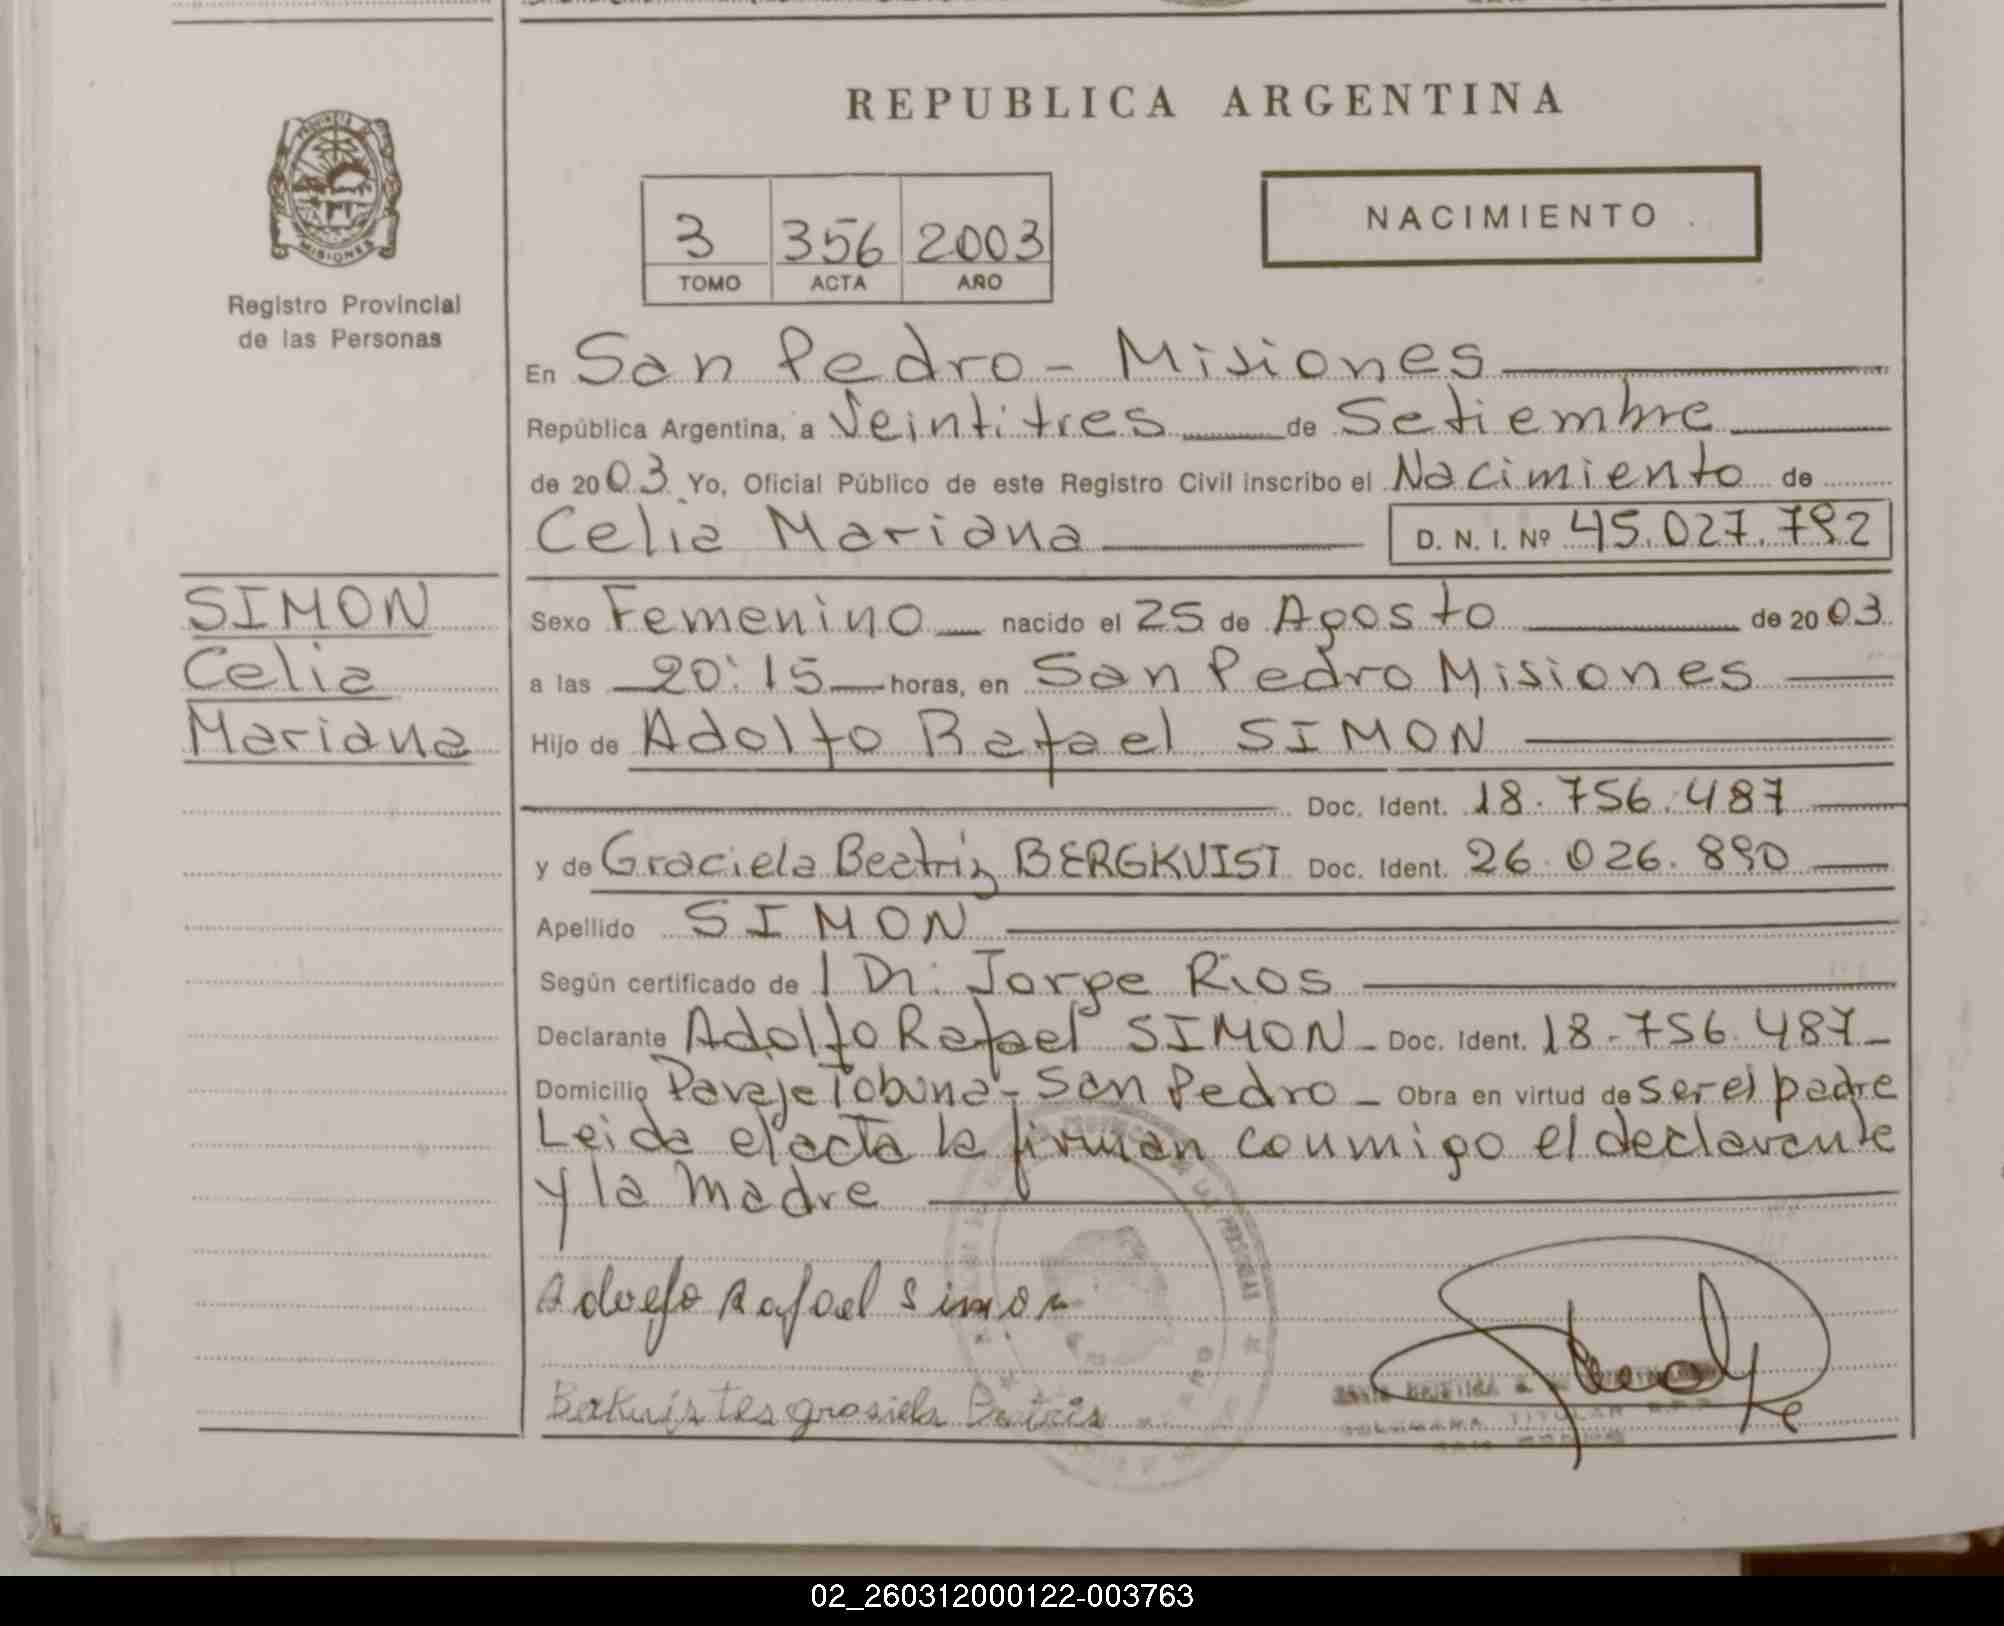 REPUBLICA ARGENTINA
PROVINCIA DE
MISIONES
Registro Provincial
de las Personas
3 356 2003
TOMO ACTA AÑO
NACIMIENTO
En San Pedro - Misiones
República Argentina, a Veintitres de Setiembre
de 2003 Yo, Oficial Público de este Registro Civil inscribo el Nacimiento de
Celia Mariana D. N. I. Nº 45.027.792
SIMON
Celia
Mariana
Sexo Femenino nacido el 25 de Agosto de 2003
a las 20:15 horas, en San Pedro Misiones
Hijo de Adolfo Rafael SIMON
Doc. Ident. 18.756.487
y de Graciela Beatriz BERGKVIST Doc. Ident. 26.026.890
Apellido SIMON
Según certificado de Dr. Jorge Rios
Declarante Adolfo Rafael SIMON - Doc. Ident. 18.756.487
Domicilio Paraje Tobuna - San Pedro - Obra en virtud de ser el padre
Leida el acta la firman conmigo el declarante
y la madre
Adolfo Rafael Simon
02_260312000122-003763